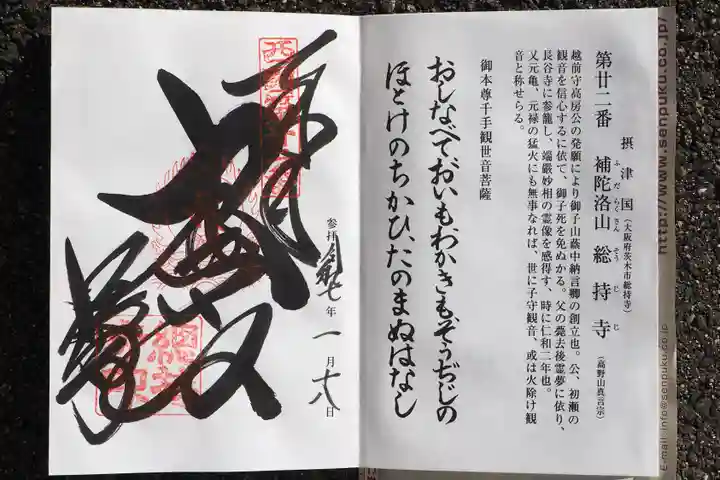 摂津国（大阪府茨木市総持寺）
第廿二番 補陀洛山 総持寺（高野山真言宗）
ふだらくさん そうじじ
越前守高房公の発願により御子山蔭中納言卿の創立也。公、初瀬の
観音を信心するに依て、御子死を免ぬかる。父の薨去後霊夢に依り、
長谷寺に参籠し、端厳妙相の霊像を感得す、時に仁和二年也。
又元亀、元禄の猛火にも無事なれば、世に子守観音、或は火除け観
音と称せらる。
御本尊千手観世音菩薩
おしなべておいもわかきもそうぢじの
ほとけのちかひ、たのまぬはなし
参拝 令和七年 一月十八日
http://www.senpuku.co.jp/
E-mail info@senpuku.co.jp